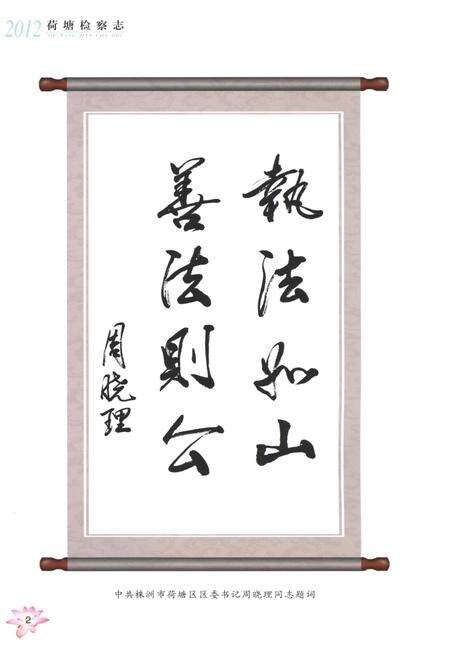 2012荷塘检察志
執法如山
善法則公
周晓理
中共株洲市荷塘区区委书记周晓理同志题词
2